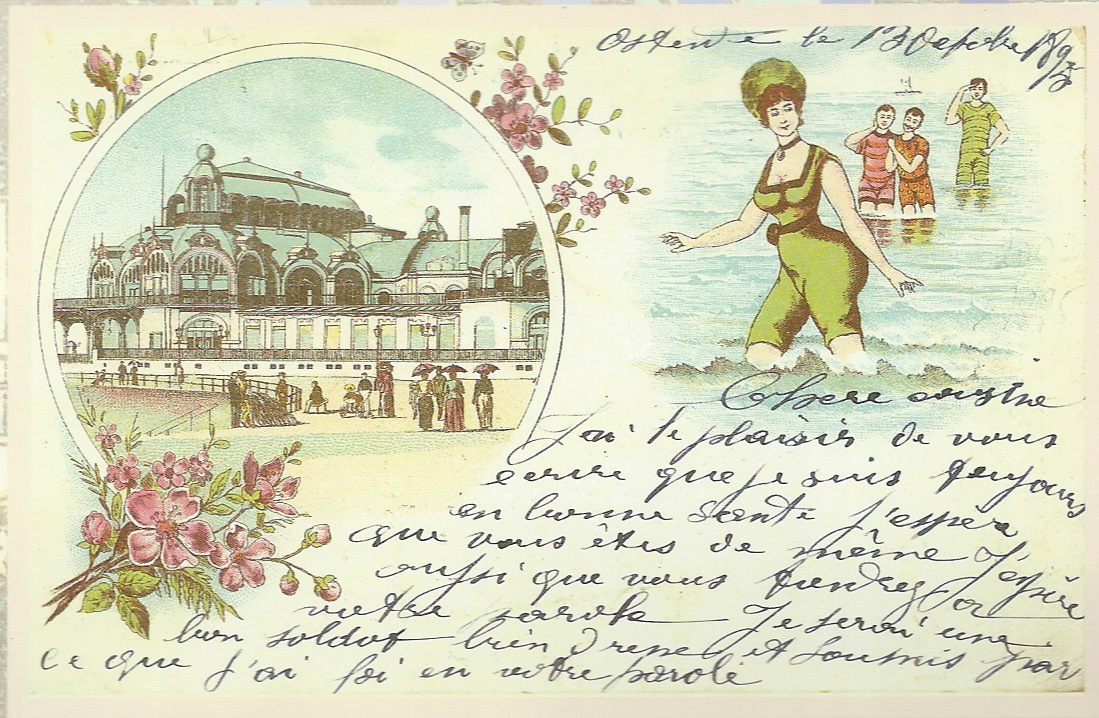 Ostende le 13 Octobre 189
Chere
J'ai le plaisir de vous
ecrire que je suis toujours
en bonne sante j'espère
que vous êtes de même J'espère
aussi que vous tiendrez
votre parole Je serai une
bon soldat bien et soumis par
ce que j'ai foi en votre parole